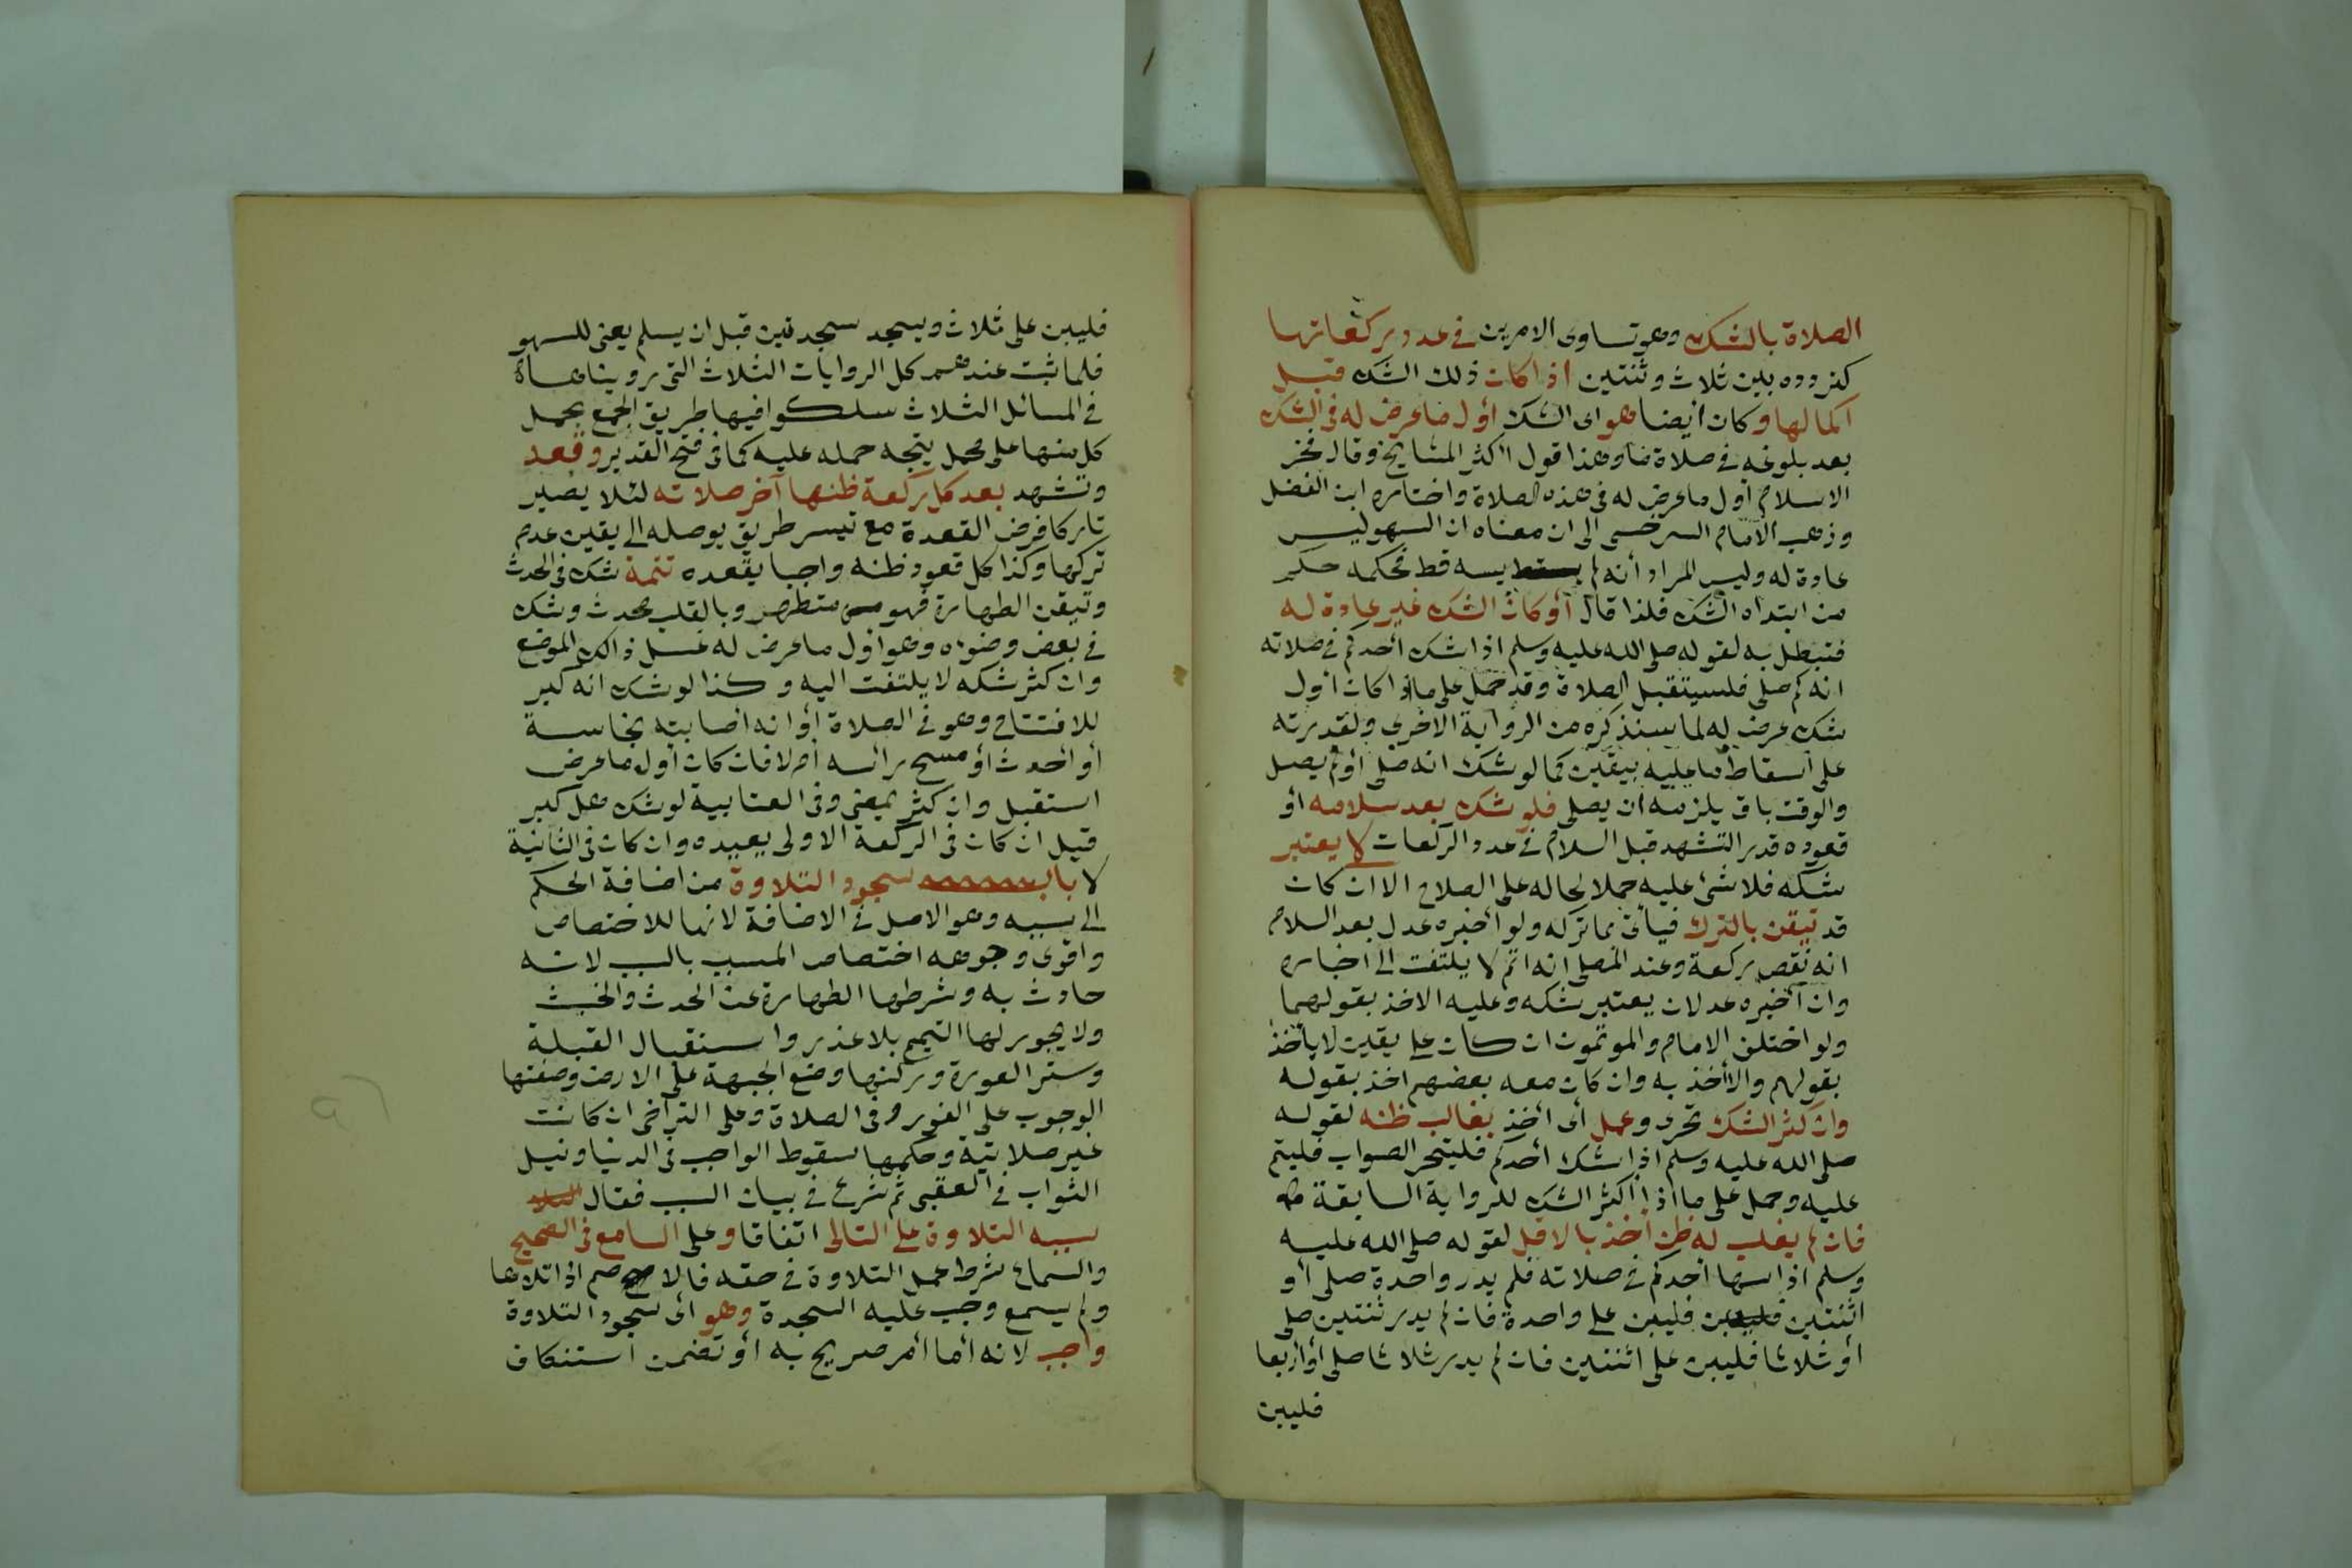 الصلاة بالشك وهو تساوى الامرين فى عدد ركعاتها
كتردده بين ثلاث وثنتين اذا كان ذلك الشك قبل
اكمالها وكان أيضا هو اى الشك أول ما عرض له فى الشك
بعد بلوغه فى صلاة ما وهذا قول أكثر المشايخ وقال فخر
الاسلام أول ما عرض له فى هذه الصلاة واختاره ابن الفضل
وذهب الامام السرخسى الى ان معناه ان السهو ليس
عادة له وليس المراد أنه لم يسه قط فحكمه حكم
من ابتداه الشك فلذا قال أو كان الشك غير عادة له
فتبطل به لقوله صلى الله عليه وسلم اذا شك أحدكم فى صلاته
انه كم صلى فليستقبل الصلاة وقد حمل على ما اذا كان أول
شك عرض له لما سنذكره من الرواية الاخرى ولقدرته
على اسقاط ما عليه بيقين كما لو شك انه صلى أو لم يصل
والوقت باق يلزمه ان يصلى فلو شك بعد سلامه أو
قعوده قدر التشهد قبل السلام فى عدد الركعات لا يعتبر
شكه فلا شئ عليه حملا لحاله على الصلاح الا ان كان
قد تيقن بالترك فيأتى بما تركه ولو أخبره عدل بعد السلام
انه نقص ركعة وعند المصلى انه اتم لا يلتفت الى اخباره
وان أخبره عدلان يعتبر شكه وعليه الاخذ بقولهما
ولو اختلف الامام والموتمون ان كان على يقين لا يأخذ
بقولهم والا أخذ به وان كان معه بعضهم اخذ بقوله
وان كثر الشك تحرى وعمل أى أخذ بغالب ظنه لقوله
صلى الله عليه وسلم اذا شك أحدكم فليتحر الصواب فليتم
عليه وحمل على ما اذا أكثر الشك للرواية السابقة
فان لم يغلب له ظن أخذ بالاقل لقوله صلى الله عليه
وسلم اذا سها أحدكم فى صلاته فلم يدر واحدة صلى أو
اثنتين فليبن على واحدة فان لم يدر ثنتين صلى
أو ثلاثا فليبن على اثنتين فان لم يدر ثلاثا صلى أو أربعا
فليبن
فليبن على ثلاث ويسجد سجدتين قبل ان يسلم يعنى للسهو
فلما ثبت عندهم كل الروايات الثلاث التى رويناها
فى المسائل الثلاث سلكوا فيها طريق الجمع بحمل
كل منها على محمل يتجه حمله عليه كما فى فتح القدير وقعد
وتشهد بعد كل ركعة ظنها آخر صلاته لئلا يصير
تاركا فرض القعدة مع تيسر طريق يوصله الى يقين عدم
تركها وكذا كل قعود ظنه واجبا يقعده تتمة شك فى الحدث
وتيقن الطهارة فهو متطهر وبالقلب محدث وشك
فى بعض وضوءه وهو أول ما عرض له غسل ذالك الموضع
وان كثر شكه لا يلتفت اليه وكذا لو شك انه كبر
للافتتاح وهو فى الصلاة أو انه اصابته نجاسة
أو أحدث أو مسح رأسه أم لا فان كان أول ما عرض
استقبل وان كثر يمضى وفى العتابية لو شك هل كبر
قيل ان كان فى الركعة الاولى يعيده وان كان فى الثانية
لا باب سجود التلاوة من اضافة الحكم
الى سببه وهو الاصل فى الاضافة لانها للاختصاص
واقوى وجوهه اختصاص المسبب بالسبب لانه
حادث به وشرطها الطهارة عن الحدث والخبث
ولا يجوز لها التيمم بلا عذر واستقبال القبلة
وستر العورة وركنها وضع الجبهة على الارض وصفتها
الوجوب على الفور فى الصلاة وعلى التراخى ان كانت
غير صلاتية وحكمها سقوط الواجب فى الدنيا ونيل
الثواب فى العقبى ثم شرع فى بيان السبب فقال
سببه التلاوة على التالى اتفاقا وعلى السامع فى الصحيح
والسماع شرط عمل التلاوة فى حقه فالاصم اذا تلاها
ولم يسمع وجب عليه السجدة وهو اى سجود التلاوة
واجب لانه أما أمر صريح به أو تضمن استنكاف